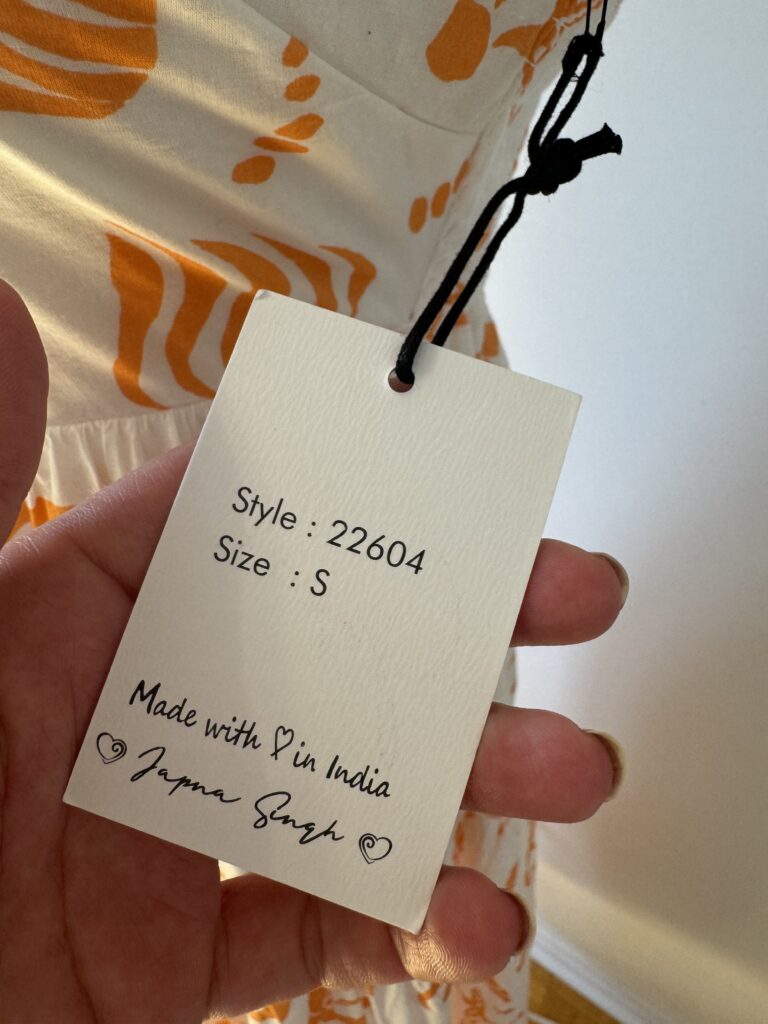 Style : 22604
Size : S
Made with ♡ in India
Japna Singh